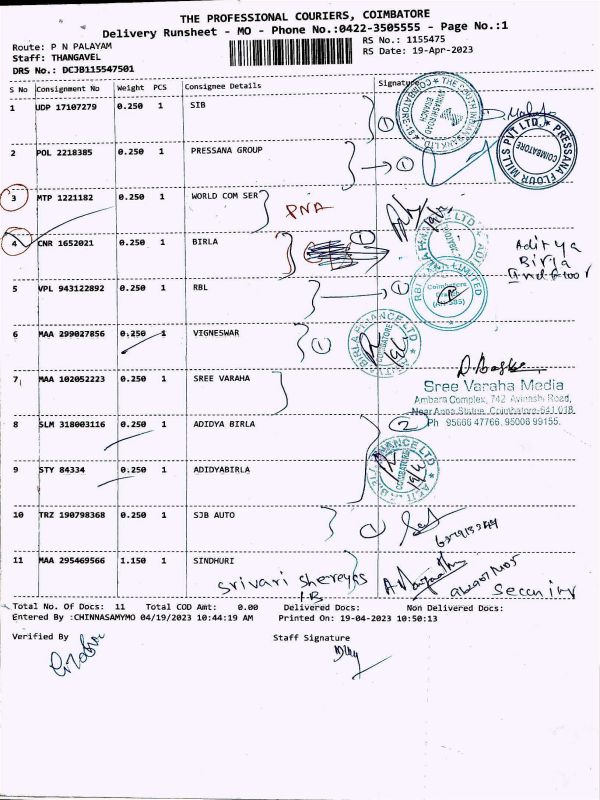 THE PROFESSIONAL COURIERS, COIMBATORE
Delivery Runsheet - MO - Phone No.:0422-3505555 - Page No.:1
Route: P N PALAYAM
RS No.: 1155475
Staff: THANGAVEL
RS Date: 19-Apr-2023
DRS No.: DCJB115547501
S No Consignment No Weight PCS Consignee Details Signature
1 UDP 17107279 0.250 1 SIB
2 POL 2218385 0.250 1 PRESSANA GROUP
PRESSANA FLOUR MILLS PVT LTD. COIMBATORE
3 MTP 1221182 0.250 1 WORLD COM SER PNA
4 CNR 1652021 0.250 1 BIRLA
Aditya
Birla
5 VPL 943122892 0.250 1 RBL
6 MAA 299027856 0.250 1 VIGNESWAR
7 MAA 102052223 0.250 1 SREE VARAHA
Sree Varaha Media
Ambara Complex, 742 Avinashi Road,
Near Anna Statue, Coimbatore-641 018.
Ph 95666 47766, 95008 99155.
8 SLM 318003116 0.250 1 ADIDYA BIRLA 2
9 STY 84334 0.250 1 ADIDYABIRLA
10 TRZ 190798368 0.250 1 SJB AUTO
11 MAA 295469566 1.150 1 SINDHURI
Srivari Shereyas
Security
Total No. Of Docs: 11 Total COD Amt: 0.00 Delivered Docs: Non Delivered Docs:
Entered By :CHINNASAMYMO 04/19/2023 10:44:19 AM Printed On: 19-04-2023 10:50:13
Verified By Staff Signature